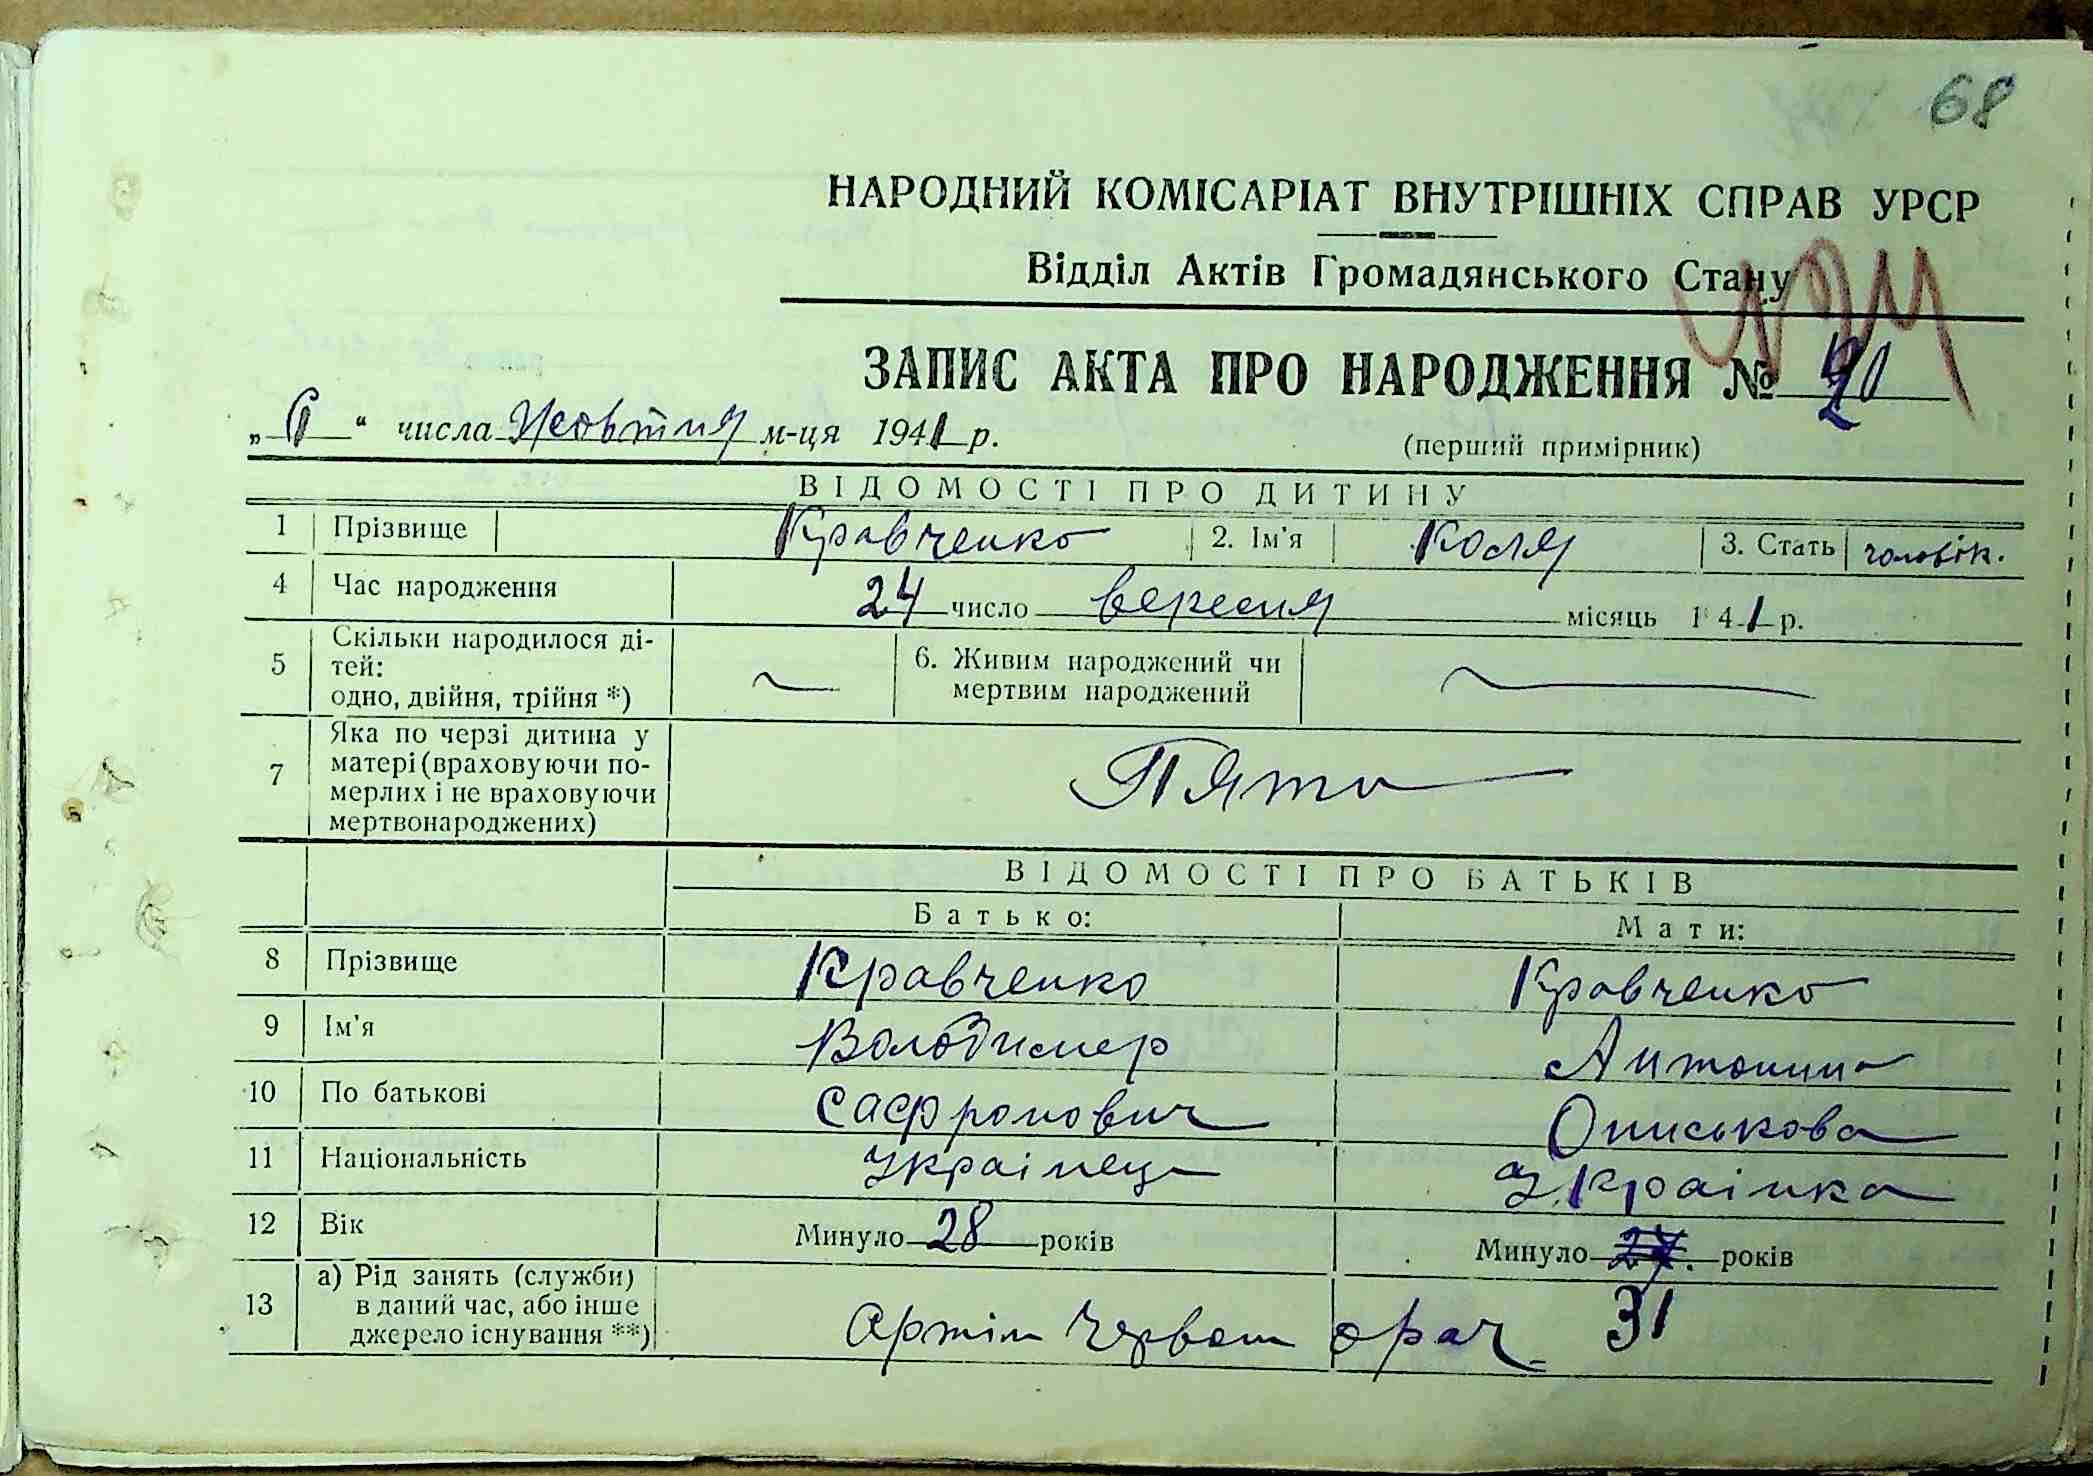 68
НАРОДНИЙ КОМІСАРІАТ ВНУТРІШНІХ СПРАВ УРСР
Відділ Актів Громадянського Стану
ЗАПИС АКТА ПРО НАРОДЖЕННЯ №
„ “ числа Жовтня м-ця 1941 р. (перший примірник)
ВІДОМОСТІ ПРО ДИТИНУ
1 Прізвище Кравченко 2. Ім'я Коля 3. Стать чоловік.
4 Час народження 24 число вересня місяць 1 41 р.
5 Скільки народилося ді-
тей:
одно, двійня, трійня *)
6. Живим народжений чи
мертвим народжений
7 Яка по черзі дитина у
матері (враховуючи по-
мерлих і не враховуючи
мертвонароджених)
Пята
ВІДОМОСТІ ПРО БАТЬКІВ
Батько: Мати:
8 Прізвище Кравченко Кравченко
9 Ім'я Володимер Антонина
10 По батькові Сафронович
11 Національність Украінець Украінка
12 Вік Минуло 28 років Минуло 27. років
31
13 а) Рід занять (служби)
в даний час, або інше
джерело існування **)